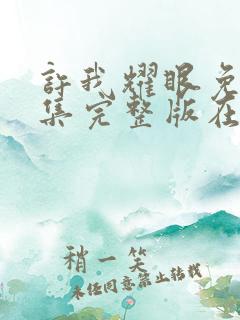 許我耀眼免
集完整版在
稍一笑
未经同意禁止转载